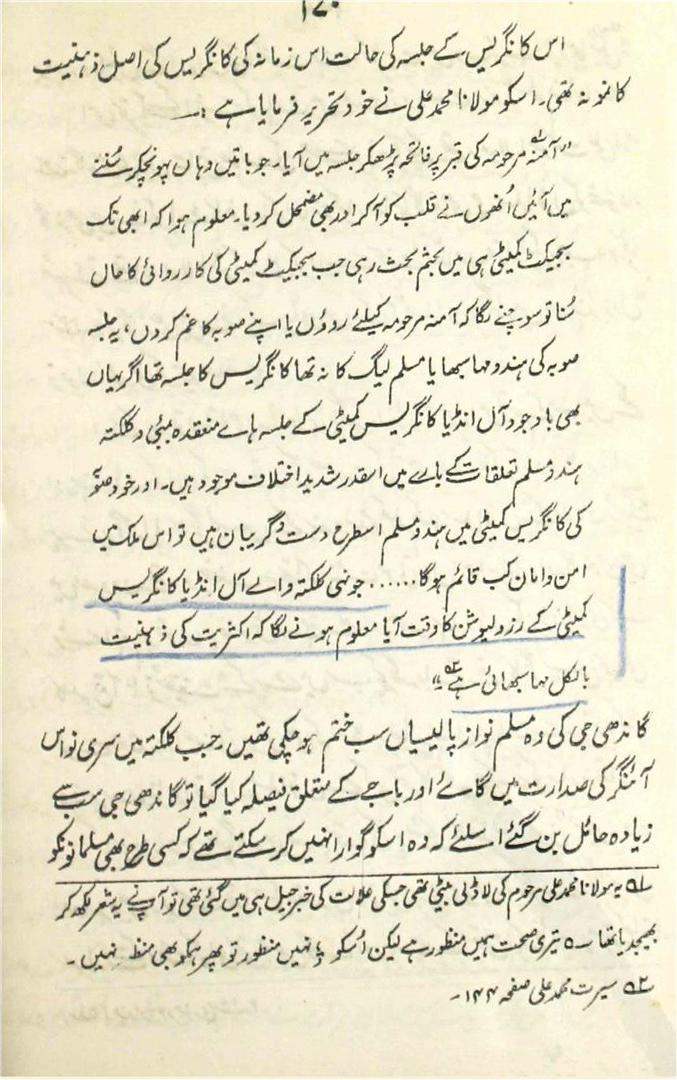 ۱۷۰
اس کانگریس کے جلسہ کی حالت اس زمانہ کی کانگریس کی اصل ذہنیت
کا نمونہ تھی۔ اسکو مولانا محمد علی نے خود تحریر فرمایا ہے :۔
"آمنہ۱؎ مرحومہ کی قبر پر فاتحہ پڑھکر جلسہ میں آیا۔ جو باتیں وہاں پہونچکر سُننے
میں آئیں اُنھوں نے قلب کو آکر اور بھی مضمحل کر دیا۔ معلوم ہوا کہ ابھی تک
سبجیکٹ کمیٹی ہی میں بحثم بحث رہی جب سبجیکٹ کمیٹی کی کارروائی کا حال
سُنا تو سوچنے لگا کہ آمنہ مرحومہ کیلئے روؤں یا اپنے صوبہ کا غم کروں، یہ جلسہ
صوبہ کی ہندو مہاسبھا یا مسلم لیگ کا نہ تھا کانگریس کا جلسہ تھا اگر یہاں
بھی باوجود آل انڈیا کانگریس کمیٹی کے جلسہ ہائے منعقدہ بمبئی و کلکتہ
ہندو مسلم تعلقات کے بارے میں اسقدر شدید اختلاف موجود ہیں۔ اور خود صوبہ
کی کانگریس کمیٹی میں ہندو مسلم اسطرح دست و گریبان ہیں تو اس ملک میں
امن و امان کب قائم ہوگا...... جونہی کلکتہ والے آل انڈیا کانگریس
کمیٹی کے رزولیوشن کا وقت آیا معلوم ہونے لگا کہ اکثریت کی ذہنیت
بالکل مہاسبھائی ہے۲؎"
گاندھی جی کی وہ مسلم نواز پالیسیاں سب ختم ہو چکی تھیں۔ جب کلکتہ میں سری نواس
آئنگر کی صدارت میں گائے اور باجے کے متعلق فیصلہ کیا گیا تو گاندھی جی سب سے
زیادہ حائل بن گئے اسلئے کہ وہ اسکو گوارا نہیں کر سکتے تھے کہ کسی طرح بھی مسلمانونکو
۱؎ یہ مولانا محمد علی مرحوم کی لاڈلی بیٹی تھی جسکی علالت کی خبر جیل ہی میں گئی تھی تو آپنے یہ شعر لکھ کر
بھیجدیا تھا ؎ تیری صحت ہمیں منظور ہے لیکن اُسکو نہیں منظور تو پھر ہمکو بھی منظور نہیں۔
۲؎ سیرت محمد علی صفحہ ۱۴۴۔